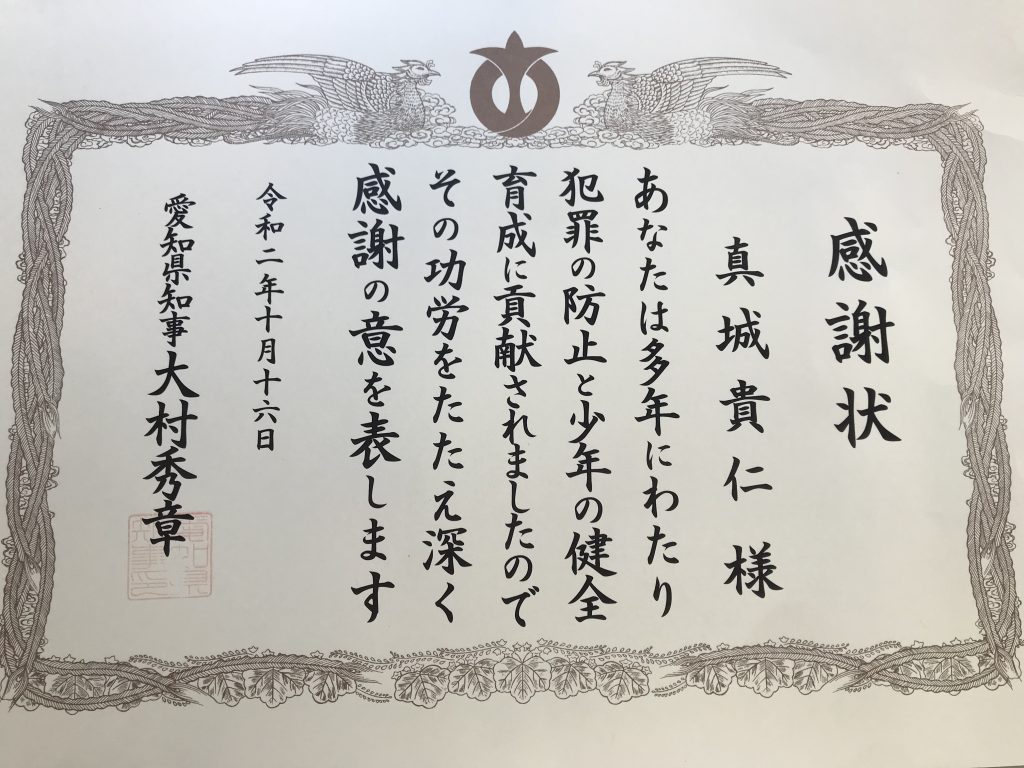 感謝状
真城貴仁様
あなたは多年にわたり
犯罪の防止と少年の健全
育成に貢献されましたので
その功労をたたえ深く
感謝の意を表します
令和二年十月十六日
愛知県知事 大村秀章